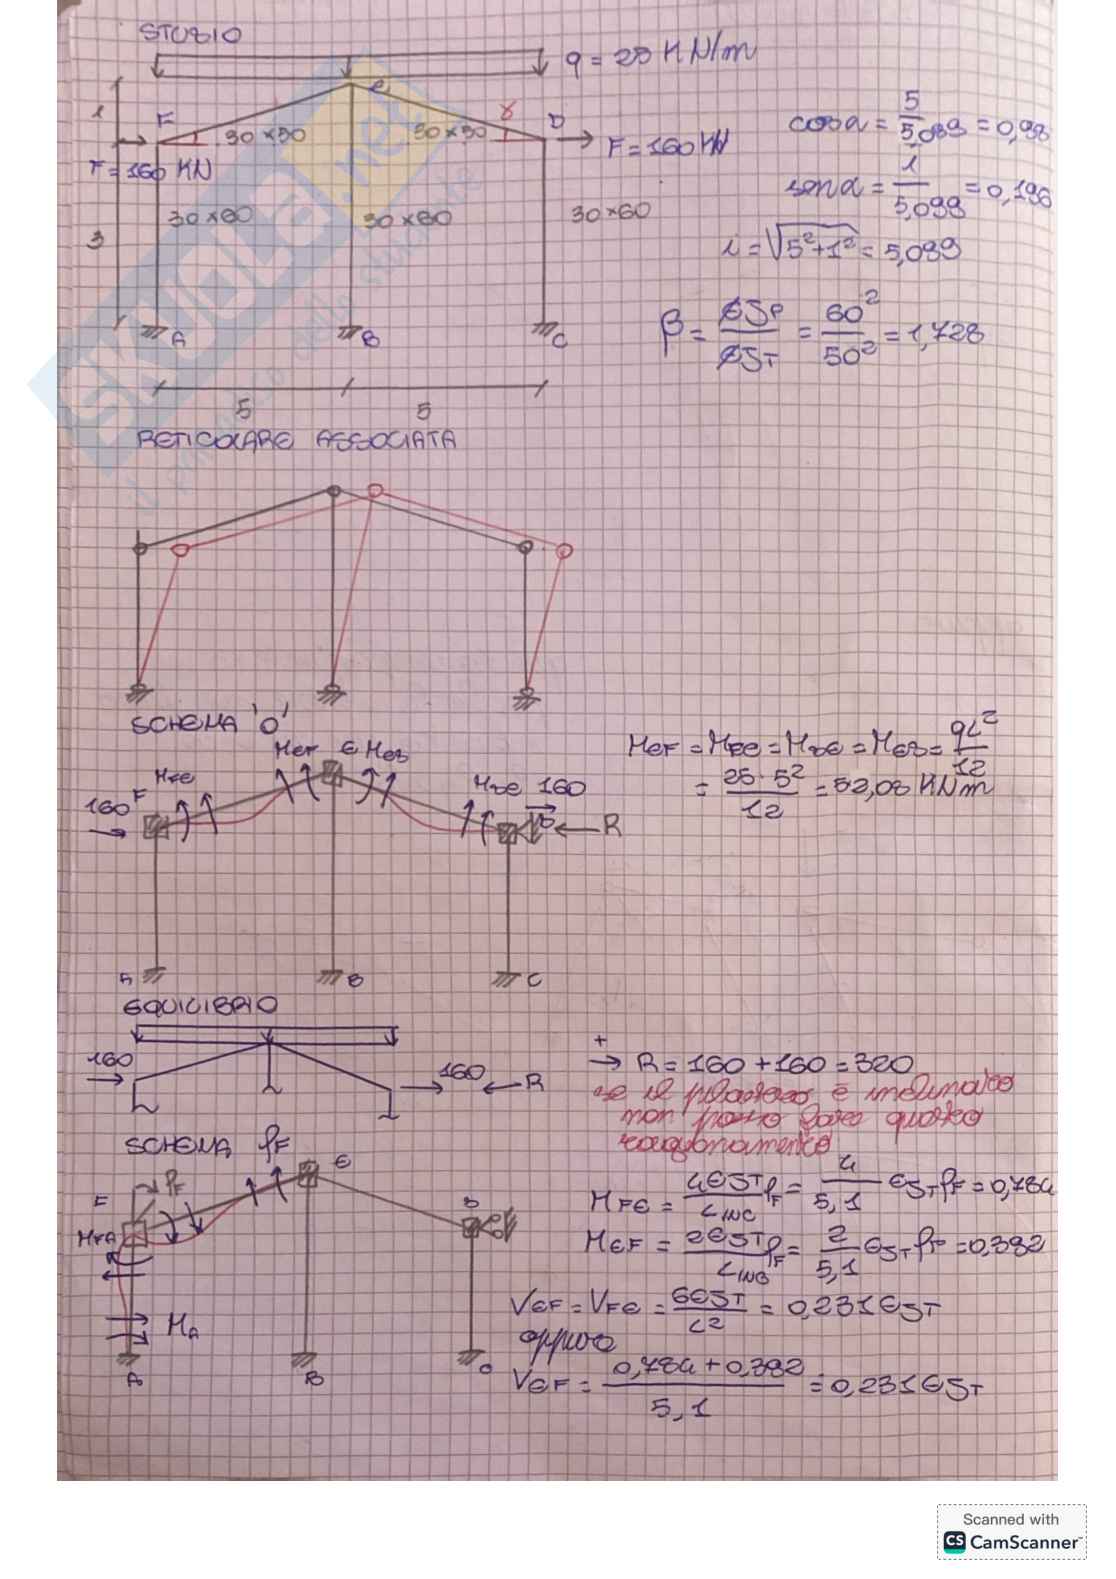 STUDIO
q = 25 KN/m
E
F
D
γ
1
30×50
30×50
F = 160 KN
F = 160 KN
30×60
30×60
30×60
3
A
B
C
5
5
cosα = 5/5,099 = 0,98
senα = 1/5,099 = 0,196
i = √5²+1² = 5,099
β = EJP/EJT = 60²/50² = 1,728
RETICOLARE ASSOCIATA
SCHEMA '0'
MEF E MED
MFE
MDE 160
160 F
D
R
A
B
C
MEF = MFE = MDE = MED = qL²/12
= 25·5²/12 = 52,08 KNm
EQUILIBRIO
160
160
R
+
→ R = 160 + 160 = 320
se il pilastro è inclinato
non posso fare questo
ragionamento
SCHEMA φF
φF
E
F
D
MFA
MA
A
B
C
MFE = 4EJT/LINC φF = 4/5,1 EJT φF = 0,784
MEF = 2EJT/LINC φF = 2/5,1 EJT φF = 0,392
VEF = VFE = 6EJT/L2 = 0,231EJT
oppure
VEF = 0,784 + 0,392/5,1 = 0,231EJT
Scanned with
CS CamScanner
SKUOLA.net
il paradiso dello studente